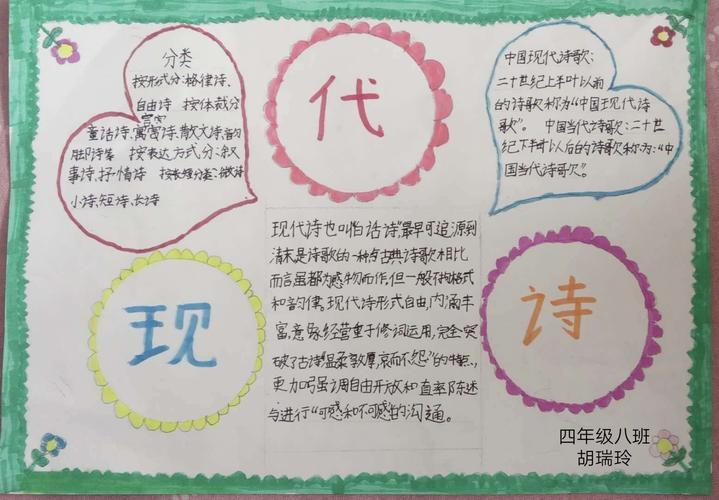 分类
按形式分:格律诗、
自由诗 按体裁分
童话诗、寓言诗、散文诗、韵
脚诗等 按表达方式分:叙
事诗、抒情诗 按长短分类:微诗
小诗、短诗、长诗
代
中国现代诗歌:
二十世纪上半叶以前
的诗歌称为“中国现代诗
歌”。 中国当代诗歌:二十世
纪下半叶以后的诗歌称为:“中
国当代诗歌”。
现
现代诗也叫“白话诗”最早可追源到
清末,是诗歌的一种与古典诗歌相比
而言虽都为感物而作,但一般不拘格式
和韵律。现代诗形式自由,内涵丰
富,意象经营重于修词运用,完全突
破了古诗“温柔敦厚,哀而不怨”的特点,
更加强调自由开放和直率陈述
与进行“可感和不可感性的沟通。
诗
四年级八班
胡瑞玲